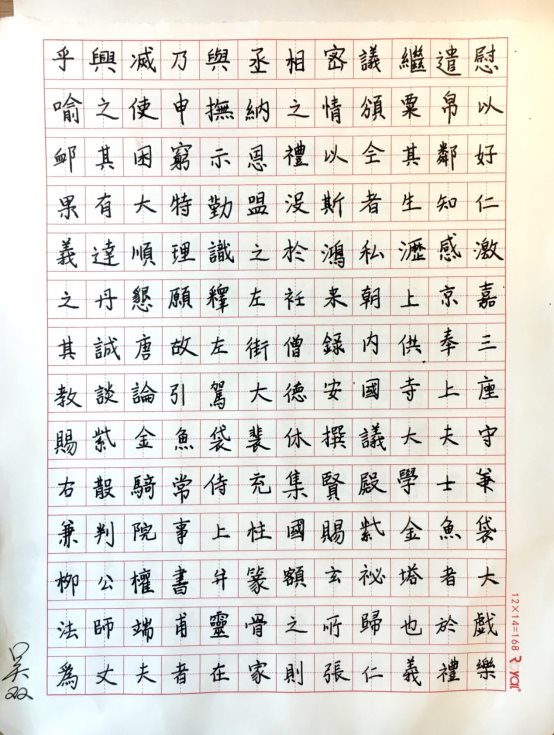 乎興滅乃與丞相密議繼遣慰
喻之使申撫納之情頒粟帛以
卹其困窮示恩禮以全其鄰好
果有大特勤盟没斯者生知仁
義達順理識之於鴻私瀝感激
之丹懇願釋左衽来朝上京嘉
其誠唐故左街僧録内供奉三
教談論引駕大德安國寺上座
賜紫金魚袋裴休撰議大夫守
右散騎常侍充集賢殿學士兼
兼判院事上柱國賜紫金魚袋
柳公權書并篆額玄祕塔者大
法師端甫靈骨之所歸也於戲
為丈夫者在家則張仁義禮樂
吴双
12×14=168 Royal